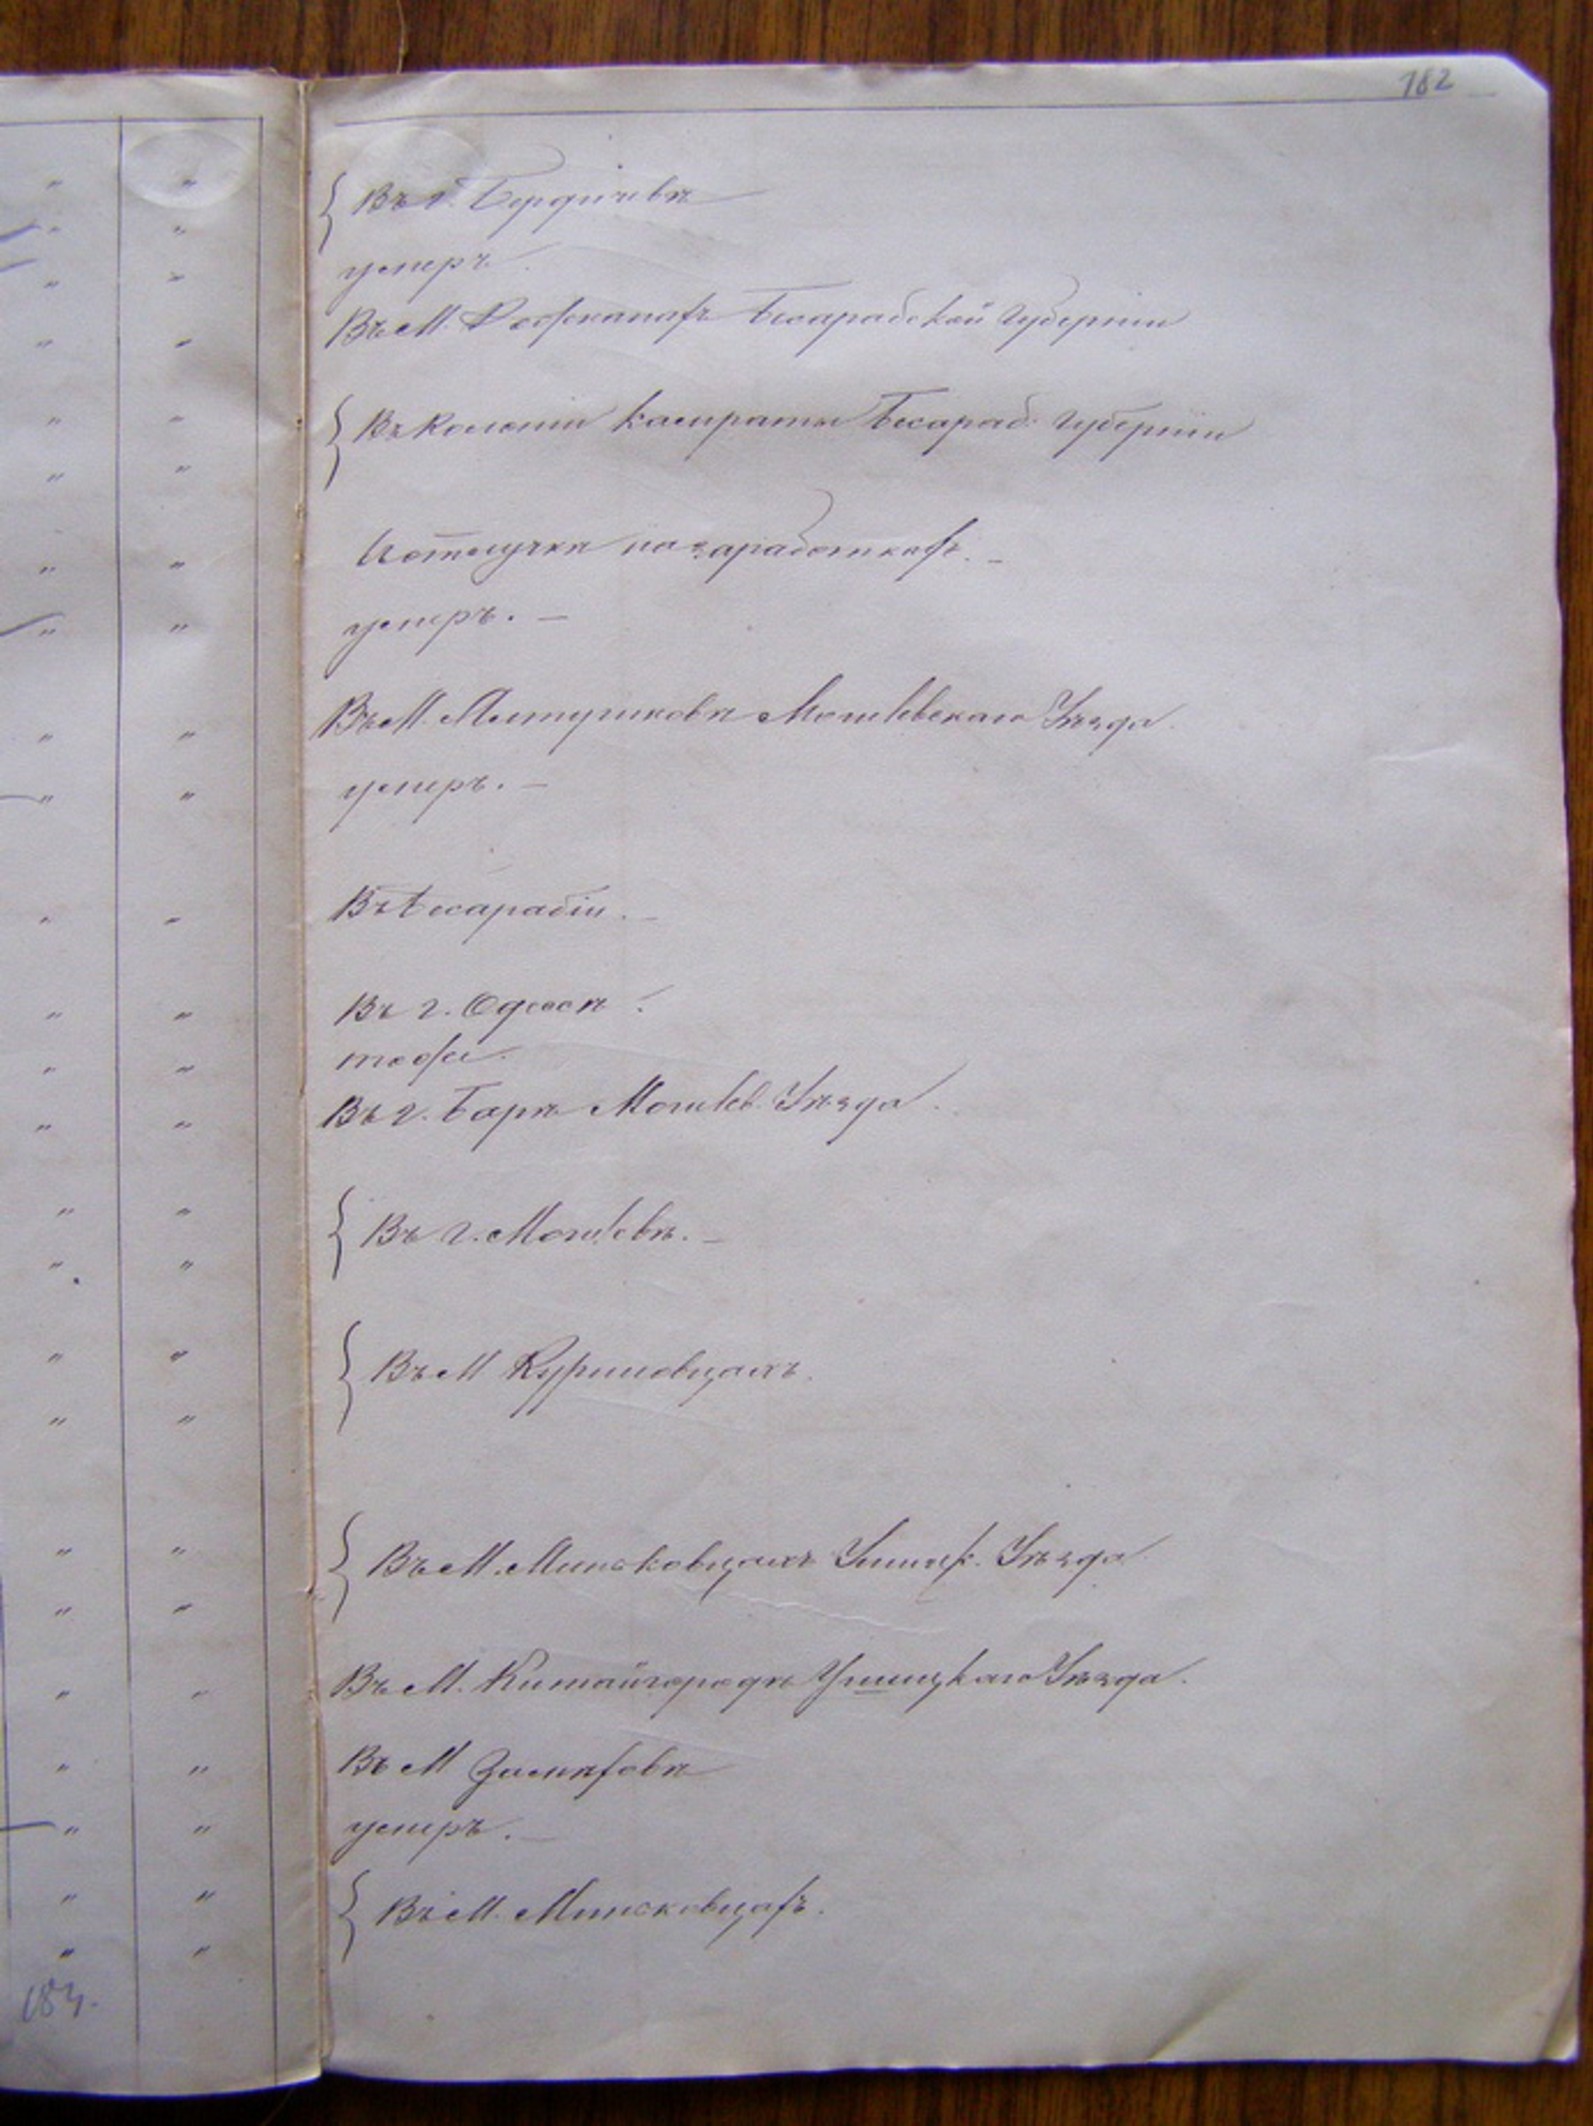 182
Въ г. Бердичевѣ
умеръ
Въ М. Бесарабской Губерніи
Въ Колоніи Каираты Бесараб. Губерніи
въ отлучкѣ на заработкахъ.
умеръ. —
Въ М. Могилевскаго Уѣзда.
умеръ. —
Въ Бесарабіи. —
Въ г. Одессѣ.
тоже.
Въ г. Барѣ Могилев. Уѣзда.
Въ г. Могилевѣ. —
Въ М Куриловцахъ.
Въ М. Миньковцахъ Ушицк. Уѣзда
Въ М. Китайгородѣ Ушицкаго Уѣзда.
Въ М Замѣховѣ
умеръ. —
Въ М. Миньковцахъ.
184.